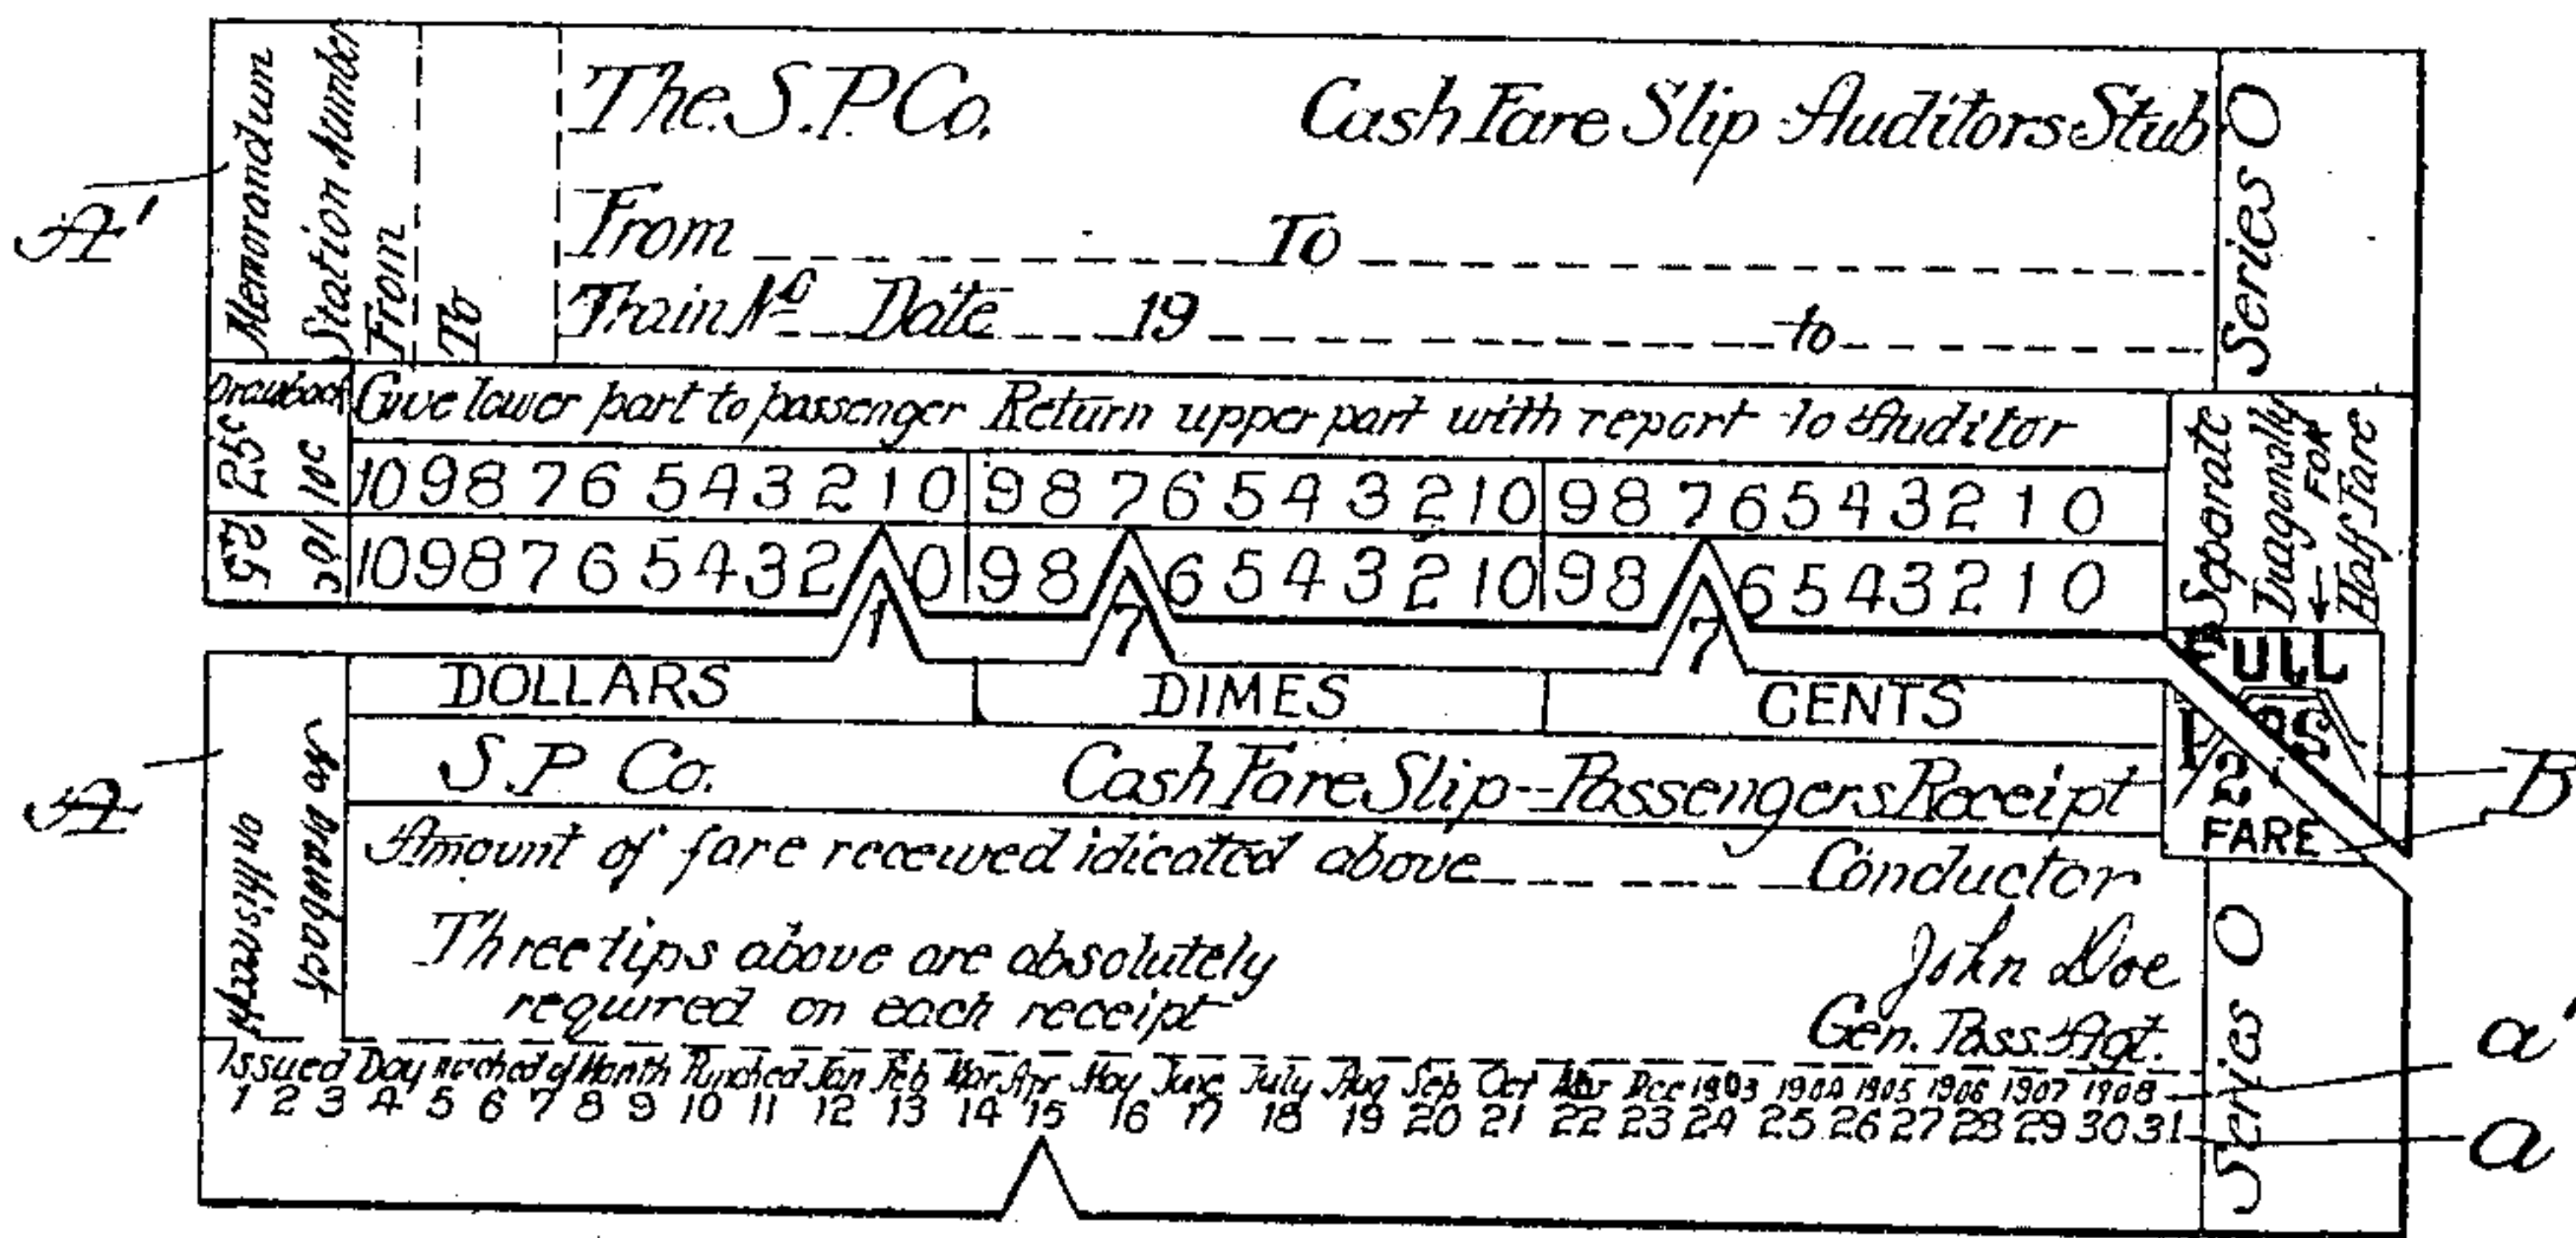 Memorandum
Station Number
From
To
The S.P. Co. Cash Fare Slip Auditors Stub
From To
Train No Date 19 to
Series O
A'
Drawback
25c 10c
25 10c
Give lower part to passenger Return upper part with report to Auditor
10 9 8 7 6 5 4 3 2 1 0 9 8 7 6 5 4 3 2 1 0 9 8 7 6 5 4 3 2 1 0
10 9 8 7 6 5 4 3 2 0 9 8 6 5 4 3 2 1 0 9 8 6 5 4 3 2 1 0
Separate
Diagonally
For
Half Fare
1 7 7
DOLLARS DIMES CENTS
FULL
1/2
FARE
B
A
S.P. Co. Cash Fare Slip--Passengers Receipt
Amount of fare received idicated above Conductor
Three tips above are absolutely
required on each receipt
John Doe
Gen. Pass. Agt.
No Drawback
on this
Series O
Issued Day of Month Punched Jan Feb Mar Apr May June July Aug Sep Oct Nov Dec 1903 1904 1905 1906 1907 1908
1 2 3 4 5 6 7 8 9 10 11 12 13 14 15 16 17 18 19 20 21 22 23 24 25 26 27 28 29 30 31
a'
a